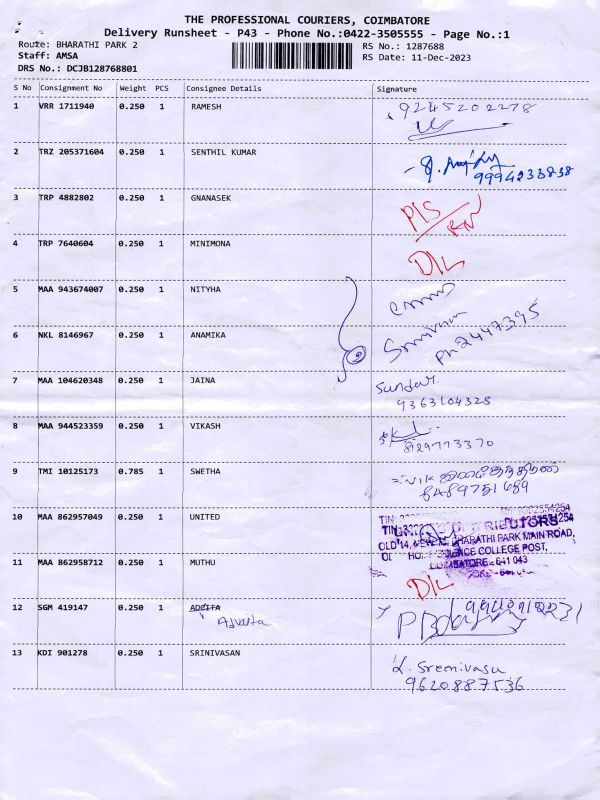 THE PROFESSIONAL COURIERS, COIMBATORE
Delivery Runsheet - P43 - Phone No.:0422-3505555 - Page No.:1
Route: BHARATHI PARK 2 RS No.: 1287688
Staff: AMSA RS Date: 11-Dec-2023
DRS No.: DCJB128768801
S No Consignment No Weight PCS Consignee Details Signature
1 VRR 1711940 0.250 1 RAMESH 9245202278
2 TRZ 205371604 0.250 1 SENTHIL KUMAR 9994233838
3 TRP 4882802 0.250 1 GNANASEK
4 TRP 7640604 0.250 1 MINIMONA D/L
5 MAA 943674007 0.250 1 NITYHA
6 NKL 8146967 0.250 1 ANAMIKA Ph 2447395
7 MAA 104620348 0.250 1 JAINA Sundar.
9363104325
8 MAA 944523359 0.250 1 VIKASH 8129773370
9 TMI 10125173 0.785 1 SWETHA
10 MAA 862957049 0.250 1 UNITED
DISTRIBUTORS
BHARATHI PARK MAIN ROAD,
COLLEGE POST,
COIMBATORE - 641 043
11 MAA 862958712 0.250 1 MUTHU D/L
12 SGM 419147 0.250 1 ADVITA
Advaita
13 KDI 901278 0.250 1 SRINIVASAN
9620887536